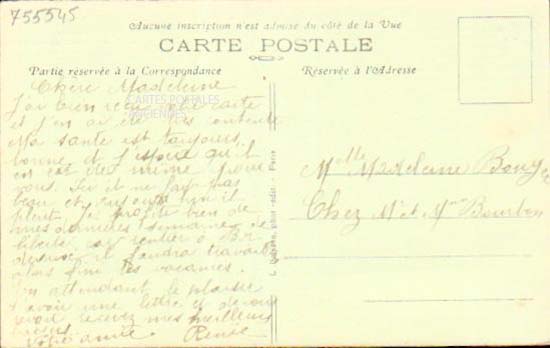 755545
Aucune inscription n'est admise du côté de la Vue
CARTE POSTALE
Partie réservée à la Correspondance
Réservée à l'Adresse
Chère Madeleine
J'ai bien reçu votre carte
et j'en ai été très contente
Ma santé est toujours
bonne et j'espère qu'il
en est de même pour
vous. Ici il ne fait pas
beau et
pleut. Je profite bien de
mes dernières semaines de
liberté car rentrée à
il faudra travailler
alors fini les vacances.
En attendant le plaisir
d'avoir une lettre et de vous
revoir recevez mes meilleurs
baisers
Votre amie Renée
CARTES POSTALES
ANCIENNES
Mlle Madeleine
Chez Mr et Mme Bourbon
phot-édit. Paris